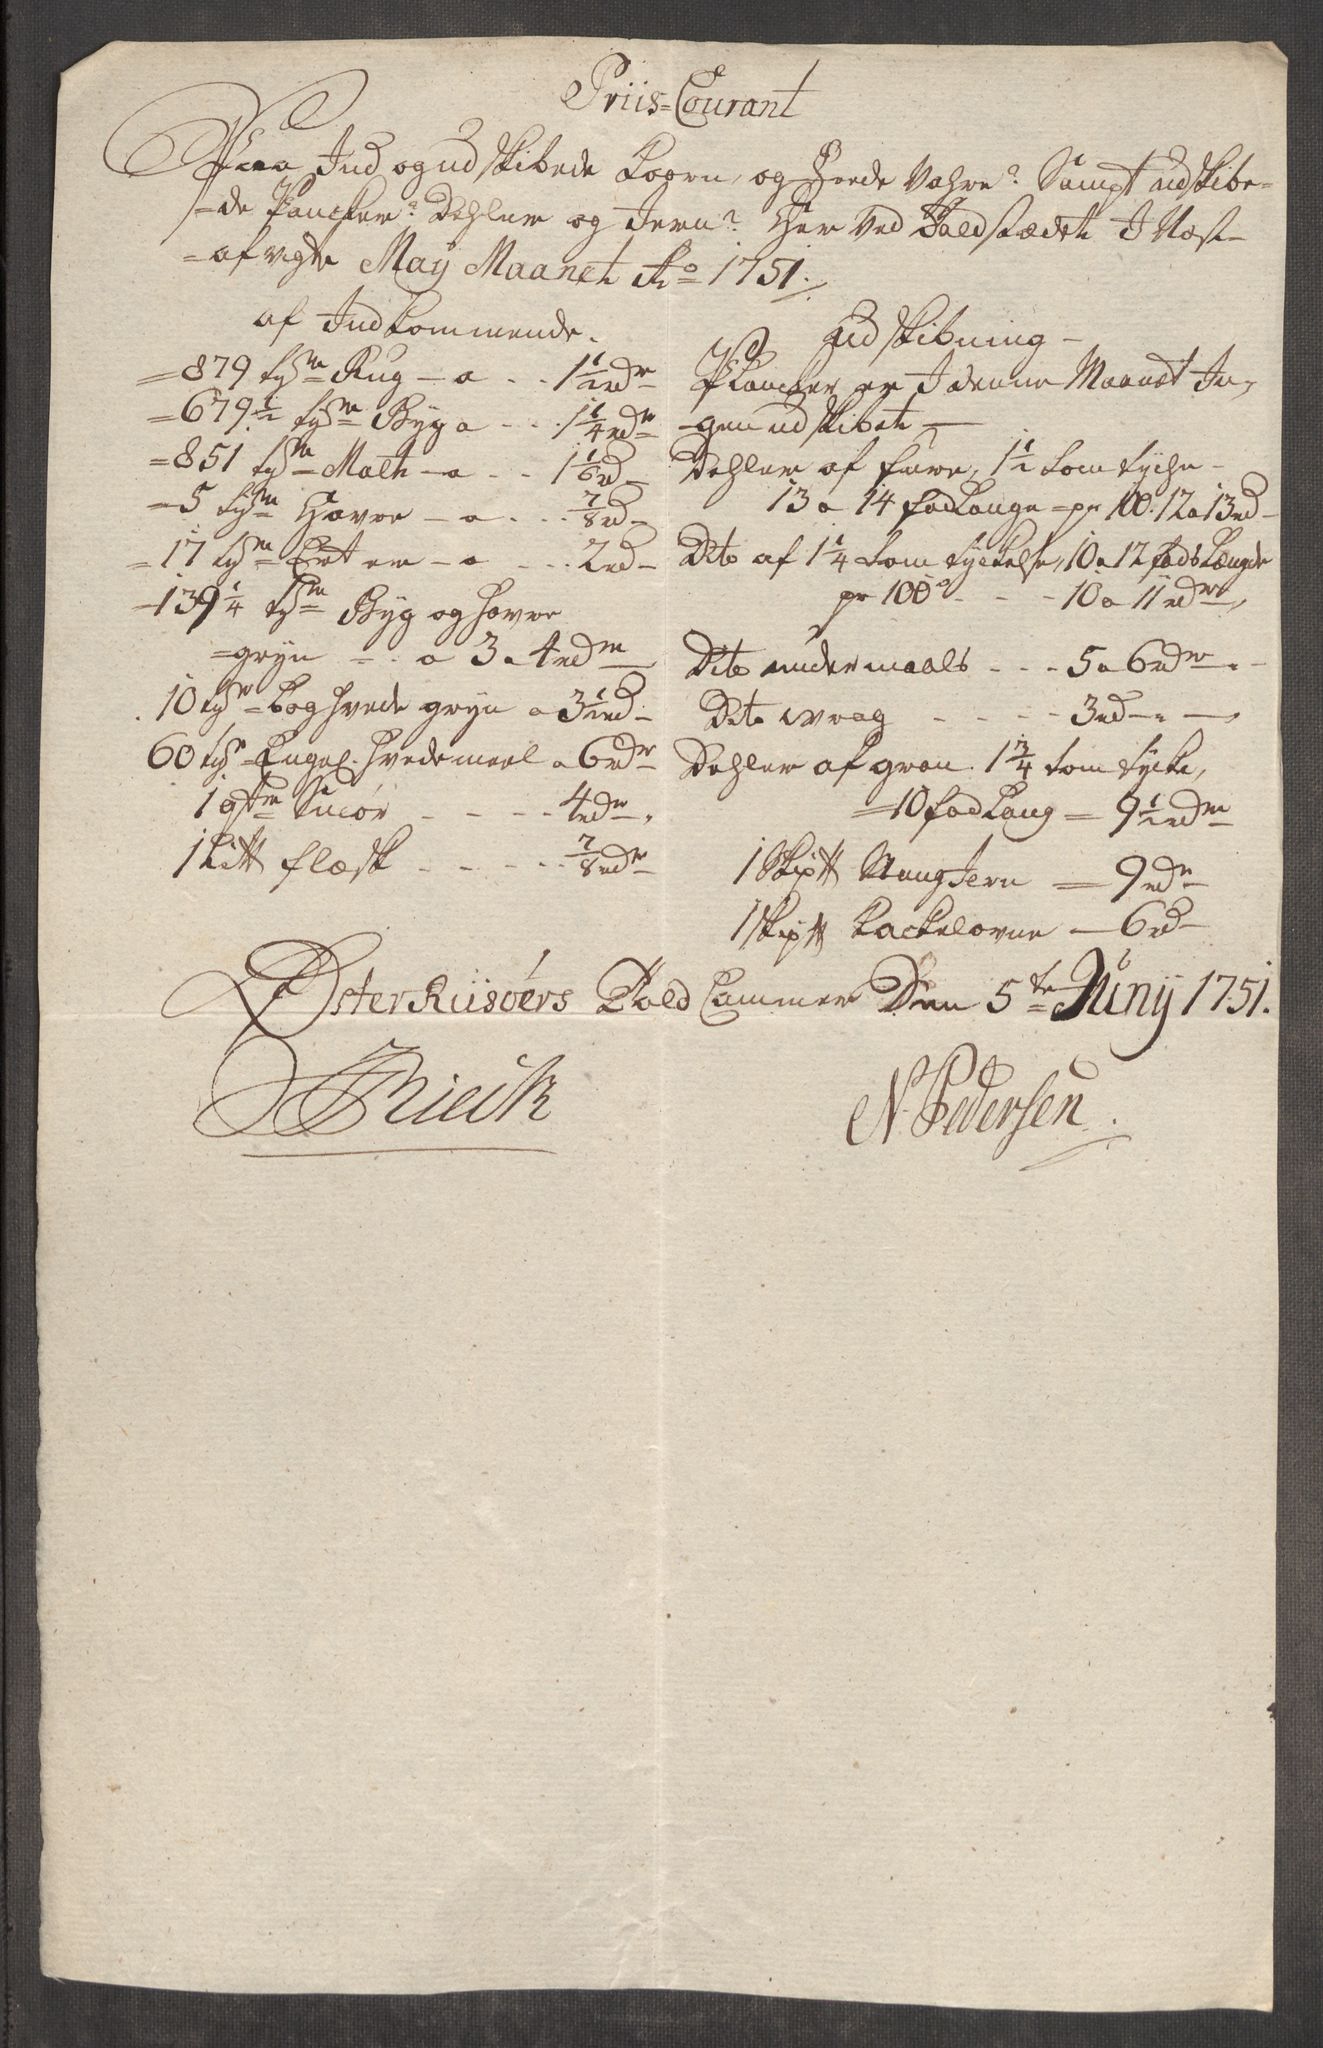 Priis-Courant
Paa Ind og udskibede Koorn, og Feede Vahre? Sampt udskibe-
-de Plancker? Dehler og Jern? Her ved Toldstædet I Næst-
-afvigte Maij Maanet Ao 1751.
af Indkommende.
=879 tsr Rug - a - - 1 1/2 rdr
=679 1/2 tsr Byg a - - 1 1/4 rdr
=851 tsr Malt - a - - 1 1/6 rd
=5 tsr Havre - a - - 7/8 rd
=17 tsr Erter - a - - 2 rd
-139 1/4 tsr Byg og havre
=gryn - - a 3 a 4 rdr
10 tsr Boghvede gryn a 3 1/2 rd
60 ts Engel. hvedemeel a 6 rdr
1 Smör - - - - 4 rdr
1 flæsk - - - - 7/8 rdr
udskibning -
Plancker er I denne Maanet In-
-gen udskibet -
Dehler af fure, 1 1/2 tom tyche -
13 a 14 fod Lange - pr 100. 12 a 13 rd -
Dito af 1 1/4 tom tyckelse, 10 a 12 fods Længde
pr 100 - - - 10 a 11 rdr
Dito undermaals - - - 5 a 6 rdr
Dito wrag - - - - 3 rd
Dehler af gran 1 3/4 tom tycke,
=10 fod Lang = 9 1/2 rdr
1 Skip℔ Stang Jern = 9 rdr
1 Skip℔ Kackelovne - 6 rd
Øster Riisöers Told Cammer Den 5te Junij 1751.
N. Pedersen